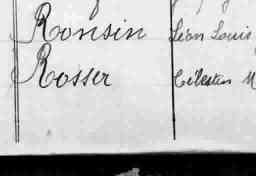 Ronsin Léon Louis
Rosser Célestin M